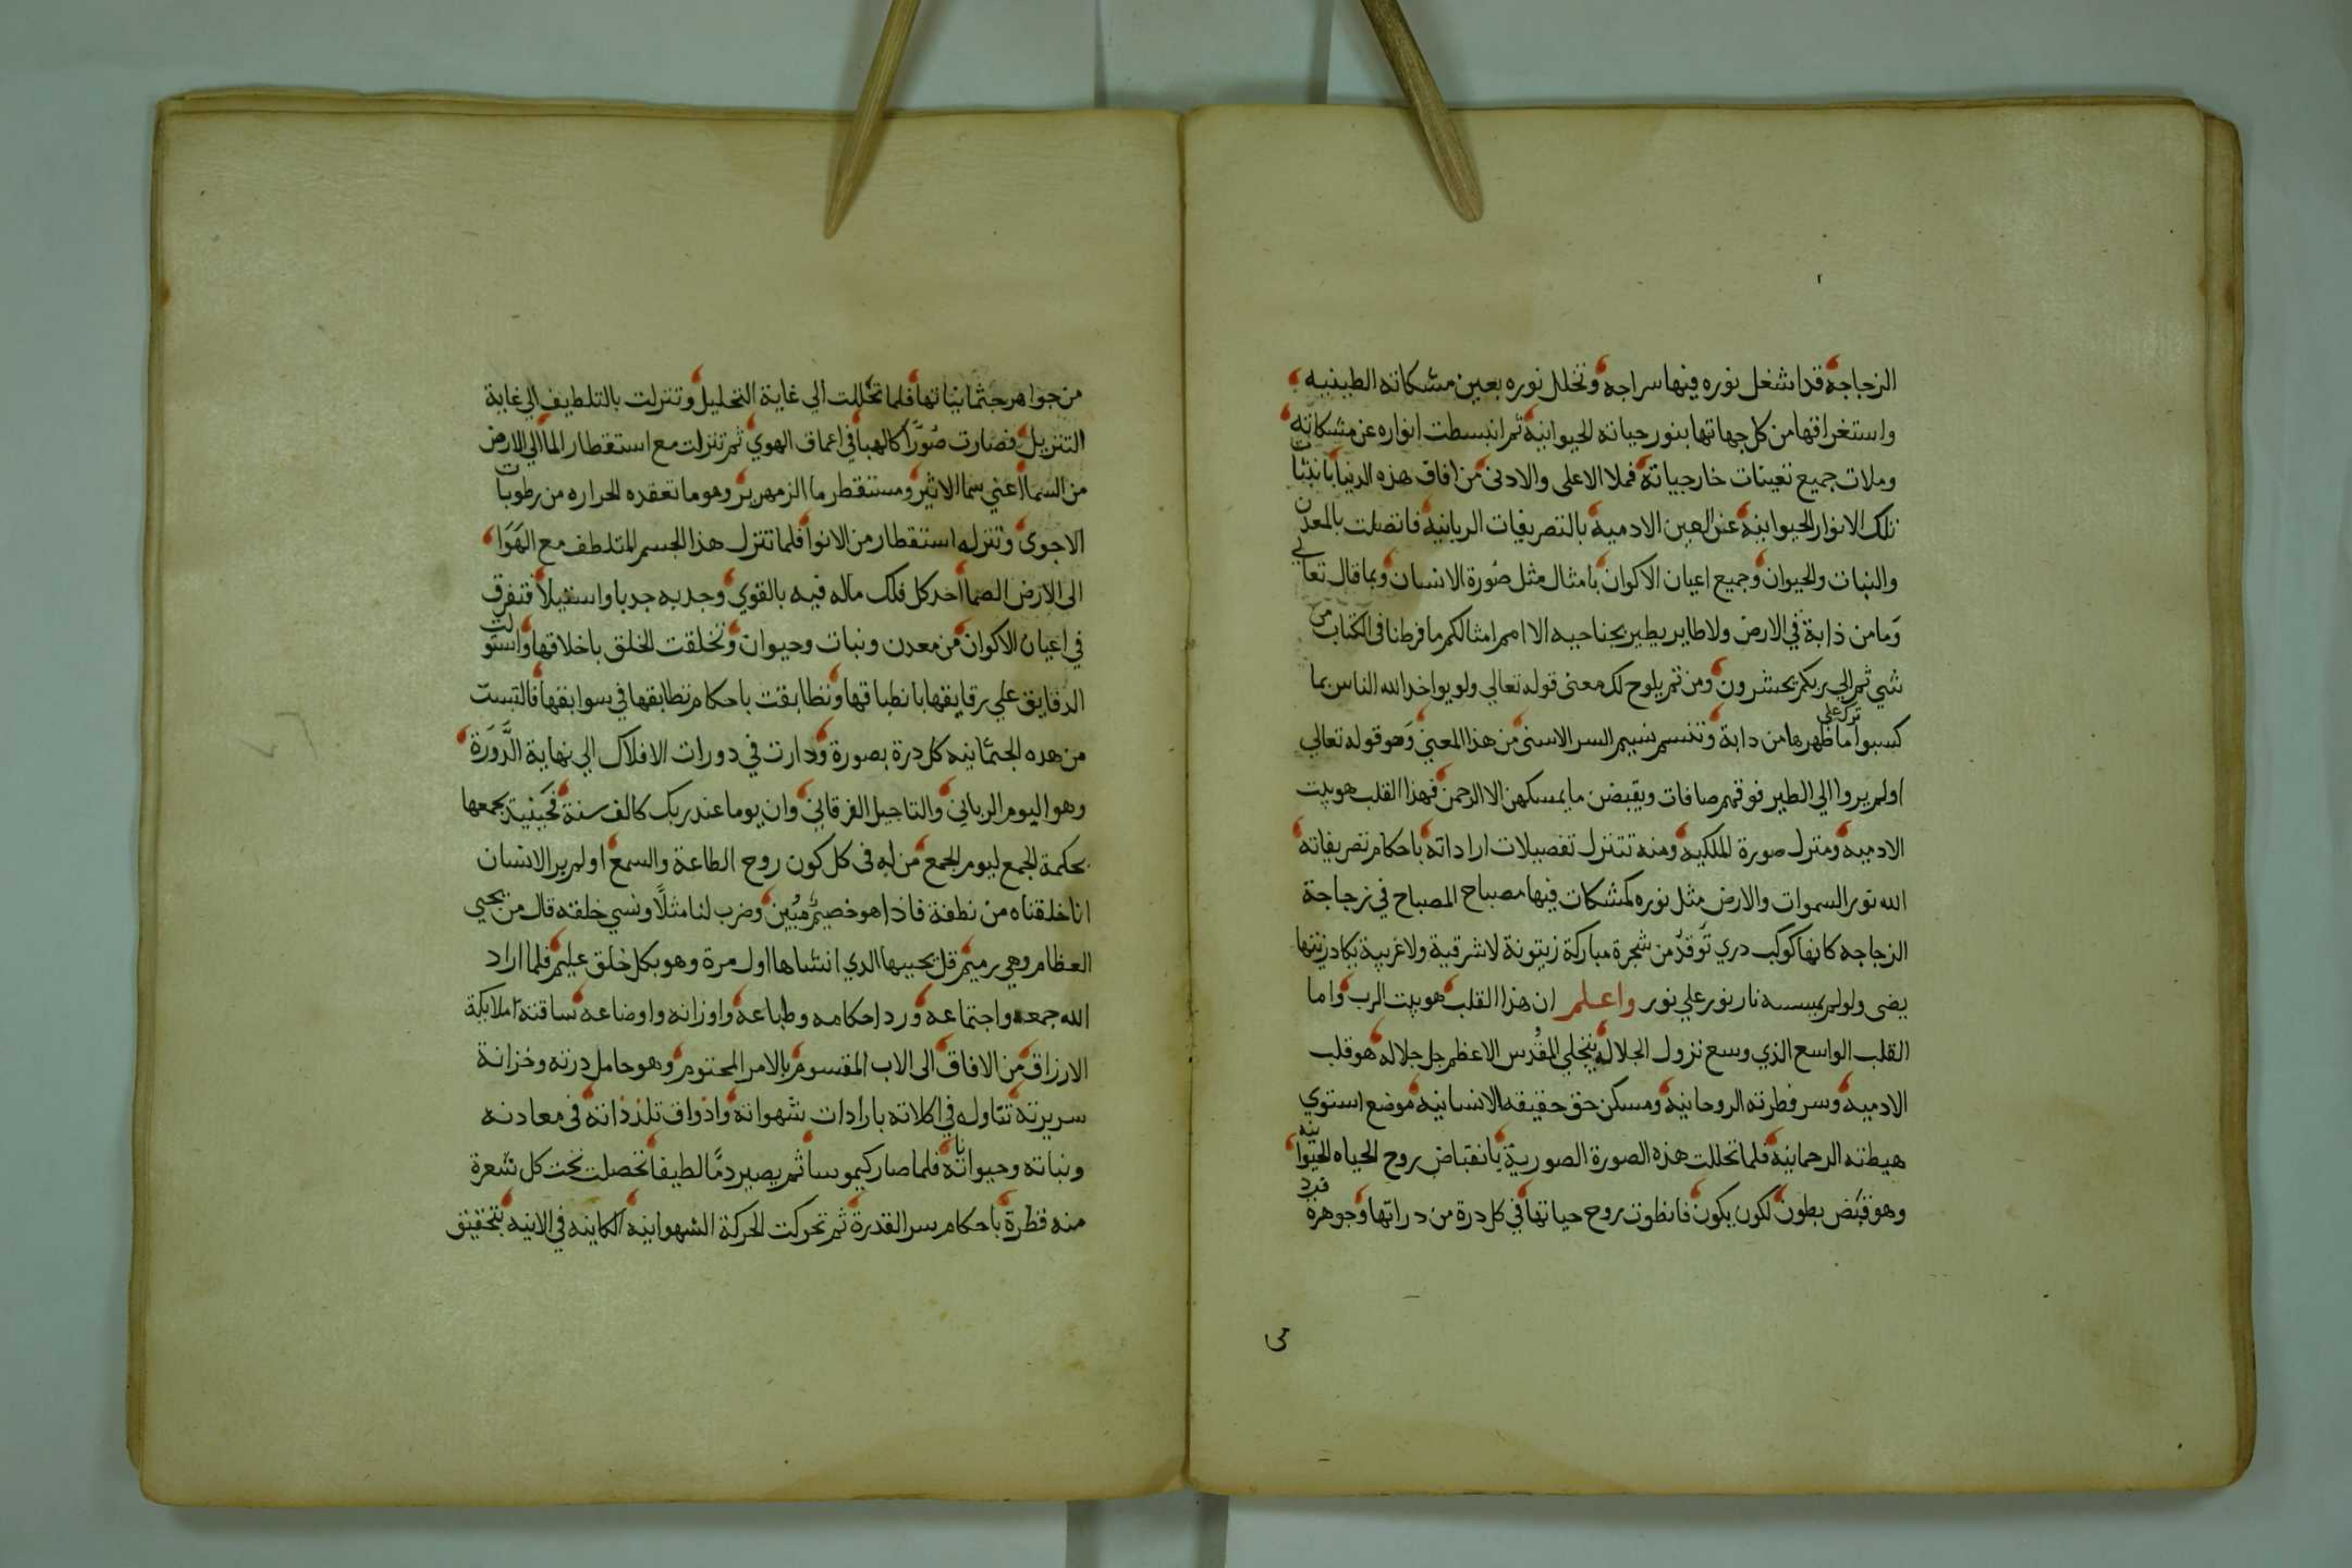 الزجاجة قد اشغل نوره فيها سراجه وتخلل نوره بعين مشكاته الطينيه
واستغراقها من كل جهاتها بنور حياته الحيوانيه ثم انبسطت انواره عن مشكاته
وملات جميع تعينات خارجياته فملا الاعلى والادنى من افاق هذه الدنيا بانبثات
تلك الانوار الحيوانيه عن العين الادميه بالتصريفات الربانيه فاتصلت بالمعدن
والنبات والحيوان وجميع اعيان الاكوان بامثال مثل صورة الانسان وبما قال تعالي
وَما من دابة في الارض ولا طاير يطير بجناحيه الا امم امثالكم ما فرطنا فى الكتاب من
شي ثم الي ربكم يحشرون ومن ثم يلوح لك معنى قوله تعالي ولو يواخذ الله الناس بما
كسبوا ما ترك على ظهرها من دابة وتنسم نسيم السر الاسنى من هذا المعني وَهو قوله تعالي
اولم يروا الي الطير فوقهم صافات ويقبضن ما يمسكهن الا الرحمن فهذا القلب هو بيت
الادميه ومنزل صورة الملكيه ومنه تتنزل تفصيلات اراداته باحكام تصريفاته
الله نور السموات والارض مثل نوره كمشكات فيها مصباح المصباح في زجاجة
الزجاجه كانها كوكب دري توقد من شجرة مباركة زيتونة لا شرقية ولا غربية يكاد زيتها
يضى ولو لم يمسسه نار نور علي نور واعلم ان هذا القلب هو بيت الرب واما
القلب الواسع الذي وسع نزول الجلاله بتجلي المقدس الاعظم جل جلاله هو قلب
الادميه وسر فطرته الروحانيه ومسكن حق حقيقه الانسانيه موضع استوي
هيطته الرحمانيه فلما تحللت هذه الصورة الصورية بانقباض روح الحياه الحيوانيه
وهو قبض بطون لكون يكون فانطوت روح حياتها في كل درة من دراتها وجوهره فرد
من جواهر جثمانياتها فلما تحللت الي غاية التحليل وتنزلت بالتلطيف الي غاية
التنزيل فصارت صُوَرًا كالهبا في اعماق الهوي ثم تنزلت مع استقطار الما الي الارض
من السما اعني سما الاثير ومستقطر ما الزمهرير وهو ما تعقده الحراره من رطوبات
الاجوى وتنزله استقطار من الانوا فلما تنزل هذا الجسم المتلطف مع الهَوَا
الى الارض الصما اخذ كل فلك ماله فيه بالقوي وجذبه جدبا واستيلا فتفرق
في اعيان الاكوان من معدن ونبات وحيوان وتخلقت الخلق باخلاقها واستولت
الدقايق علي رقايقها بانطباقها وتطابقت باحكام تطابقها في سوابقها فالتبست
من هده الجثمانيه كل درة بصورة ودارت في دورات الافلاك الي نهاية الدَّورَة
وهو اليوم الرباني والتاجيل الفرقاني وان يوما عند ربك كالف سنة فحينية يجمعها
بحكمة الجمع ليوم الجمع من له فى كل كون روح الطاعة والسمع اولم ير الانسان
انا خلقناه من نطفة فاذا هو خصيم مبُين وضرب لنا مثلاً ونسي خلقه قال من يحيي
العظام وهي رميم قل يحييها الدي انشاها اول مرة وهو بكل خلق عليم فلما اراد
الله جمعه واجتماعه ورد احكامه وطباعه واوزانه واوضاعه ساقته املايكة
الارزاق من الافاق الى الاب المقسوم بالامر المحتوم وهو حامل درته وخزانة
سريرته تتاوله في اكلاته بارادات شهواته واذواق تلذذاته فى معادنه
ونباته وحيواناته فلما صار كيموسا ثم يصير دمًا لطيفا تحصلت تحت كل شعرة
منه قطرة باحكام سر القدرة ثم تحركت الحركة الشهوانيه الكاينه في الانيه بتحقيق